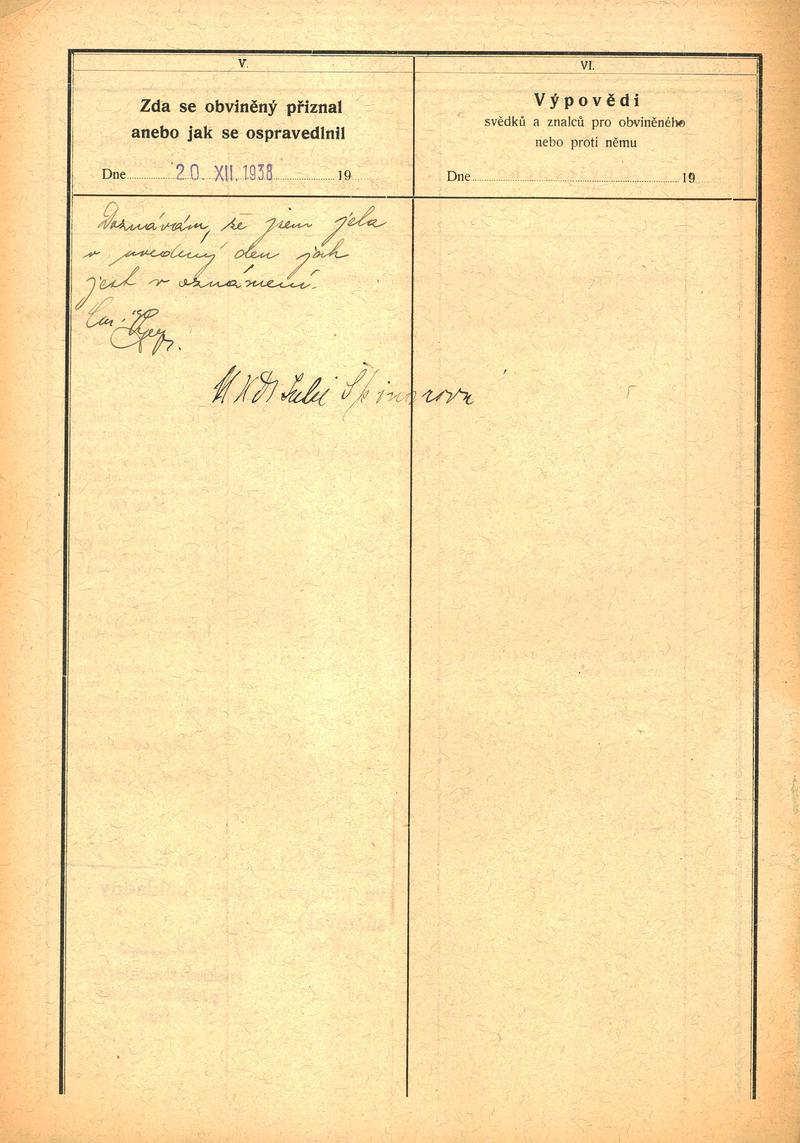 V.
Zda se obviněný přiznal
anebo jak se ospravedlnil
Dne 20. XII. 1938 19
Doznávám, že jsem jela
v uvedený den jak
jest v oznámení.
VI.
Výpovědi
svědků a znalců pro obviněného
nebo proti němu
Dne 19